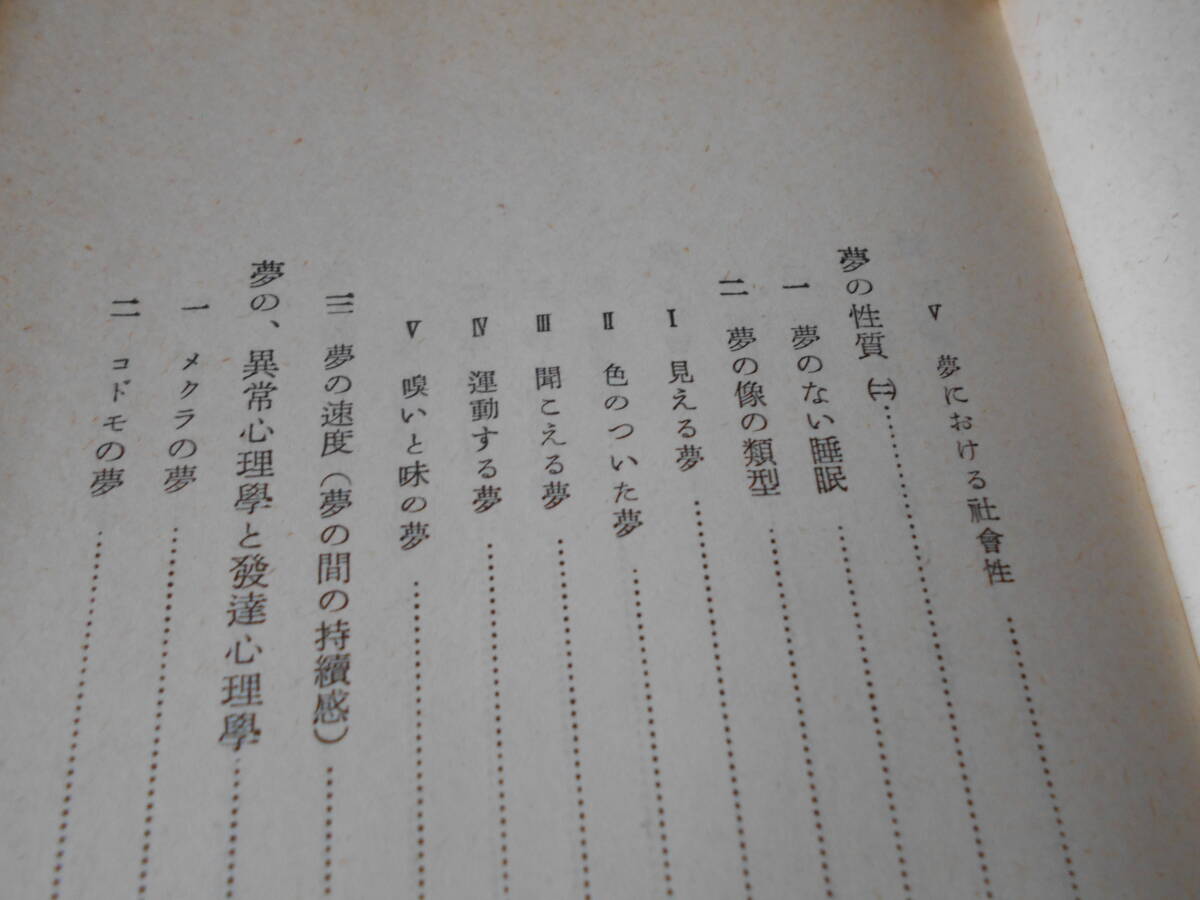 Ⅴ 夢における社會性
夢の性質 ㈡
一 夢のない睡眠
二 夢の像の類型
Ⅰ 見える夢
Ⅱ 色のついた夢
Ⅲ 聞こえる夢
Ⅳ 運動する夢
Ⅴ 嗅いと味の夢
三 夢の速度（夢の間の持續感）
夢の、異常心理學と發達心理學
一 メクラの夢
二 コドモの夢